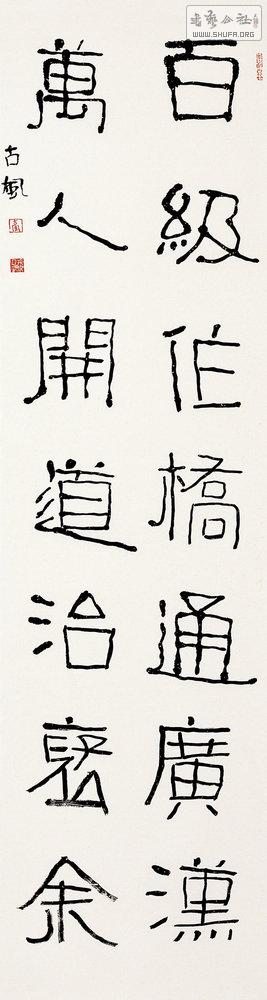 百級作橋通廣漢
萬人開道治褒余
古風
書藝公社
WWW.SHUFA.ORG